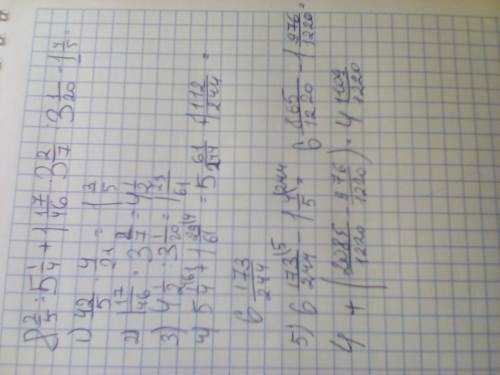 8 2/5 : 5 1/4 + 1 17/46 · 3 2/7 : 3 1/20 - 1 4/5 =
1) 42/5 · 4/21 = 1 3/5
2) 1 17/46 · 3 2/7 = 4 1/2
3) 4 1/2 : 3 1/20 = 1 29/61
4) 5 1/4 + 1 29/61 = 5 61/244 + 1 112/244 =
6 173/244
5) 6 173/244 - 1 4/5 = 6 865/1220 - 1 976/1220 =
4 + (2085/1220 - 976/1220) = 4 1109/1220